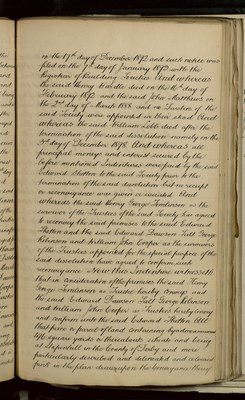 on the 17th day of December 1872 and such notice was
filed on the 7th day of January 1873 with the
Registrar of Building Societies And whereas
the said Henry Kiddle died on the 16th day of
February 1872 and the said John Matthews on
the 2nd day of March 1888 and no Trustees of the
said Society were appointed in their stead And
whereas the said William died after the
termination of the said dissolution namely on the
3rd day of December 1878 And whereas all
principal moneys and interest secured by the
before mentioned Indentures were paid by the said
Edward Shotton to the said Society prior to the
termination of the said dissolution but no receipt
or reconveyance was given or executed And
whereas the said Henry George Tomlinson as the
survivor of the Trustees of the said Society has agreed
to reconvey the said premises to the said Edward
Shotton and the said Edward Dawson Salt George
Robinson and William John Cooper as the survivors
of the Trustees appointed for the special purpose of the
said dissolution have agreed to confirm such
reconveyance Now this Indenture witnesseth
that in consideration of the premises the said Henry
George Tomlinson as Trustee hereby conveys and
the said Edward Dawson Salt George Robinson
and William John Cooper as Trustees hereby convey
and confirm unto the said Edward Shotton All
that piece or parcel of land containing
square yards or thereabouts situate and being
at in the County of Derby and more
particularly described and delineated and coloured
pink on the plan drawn upon the